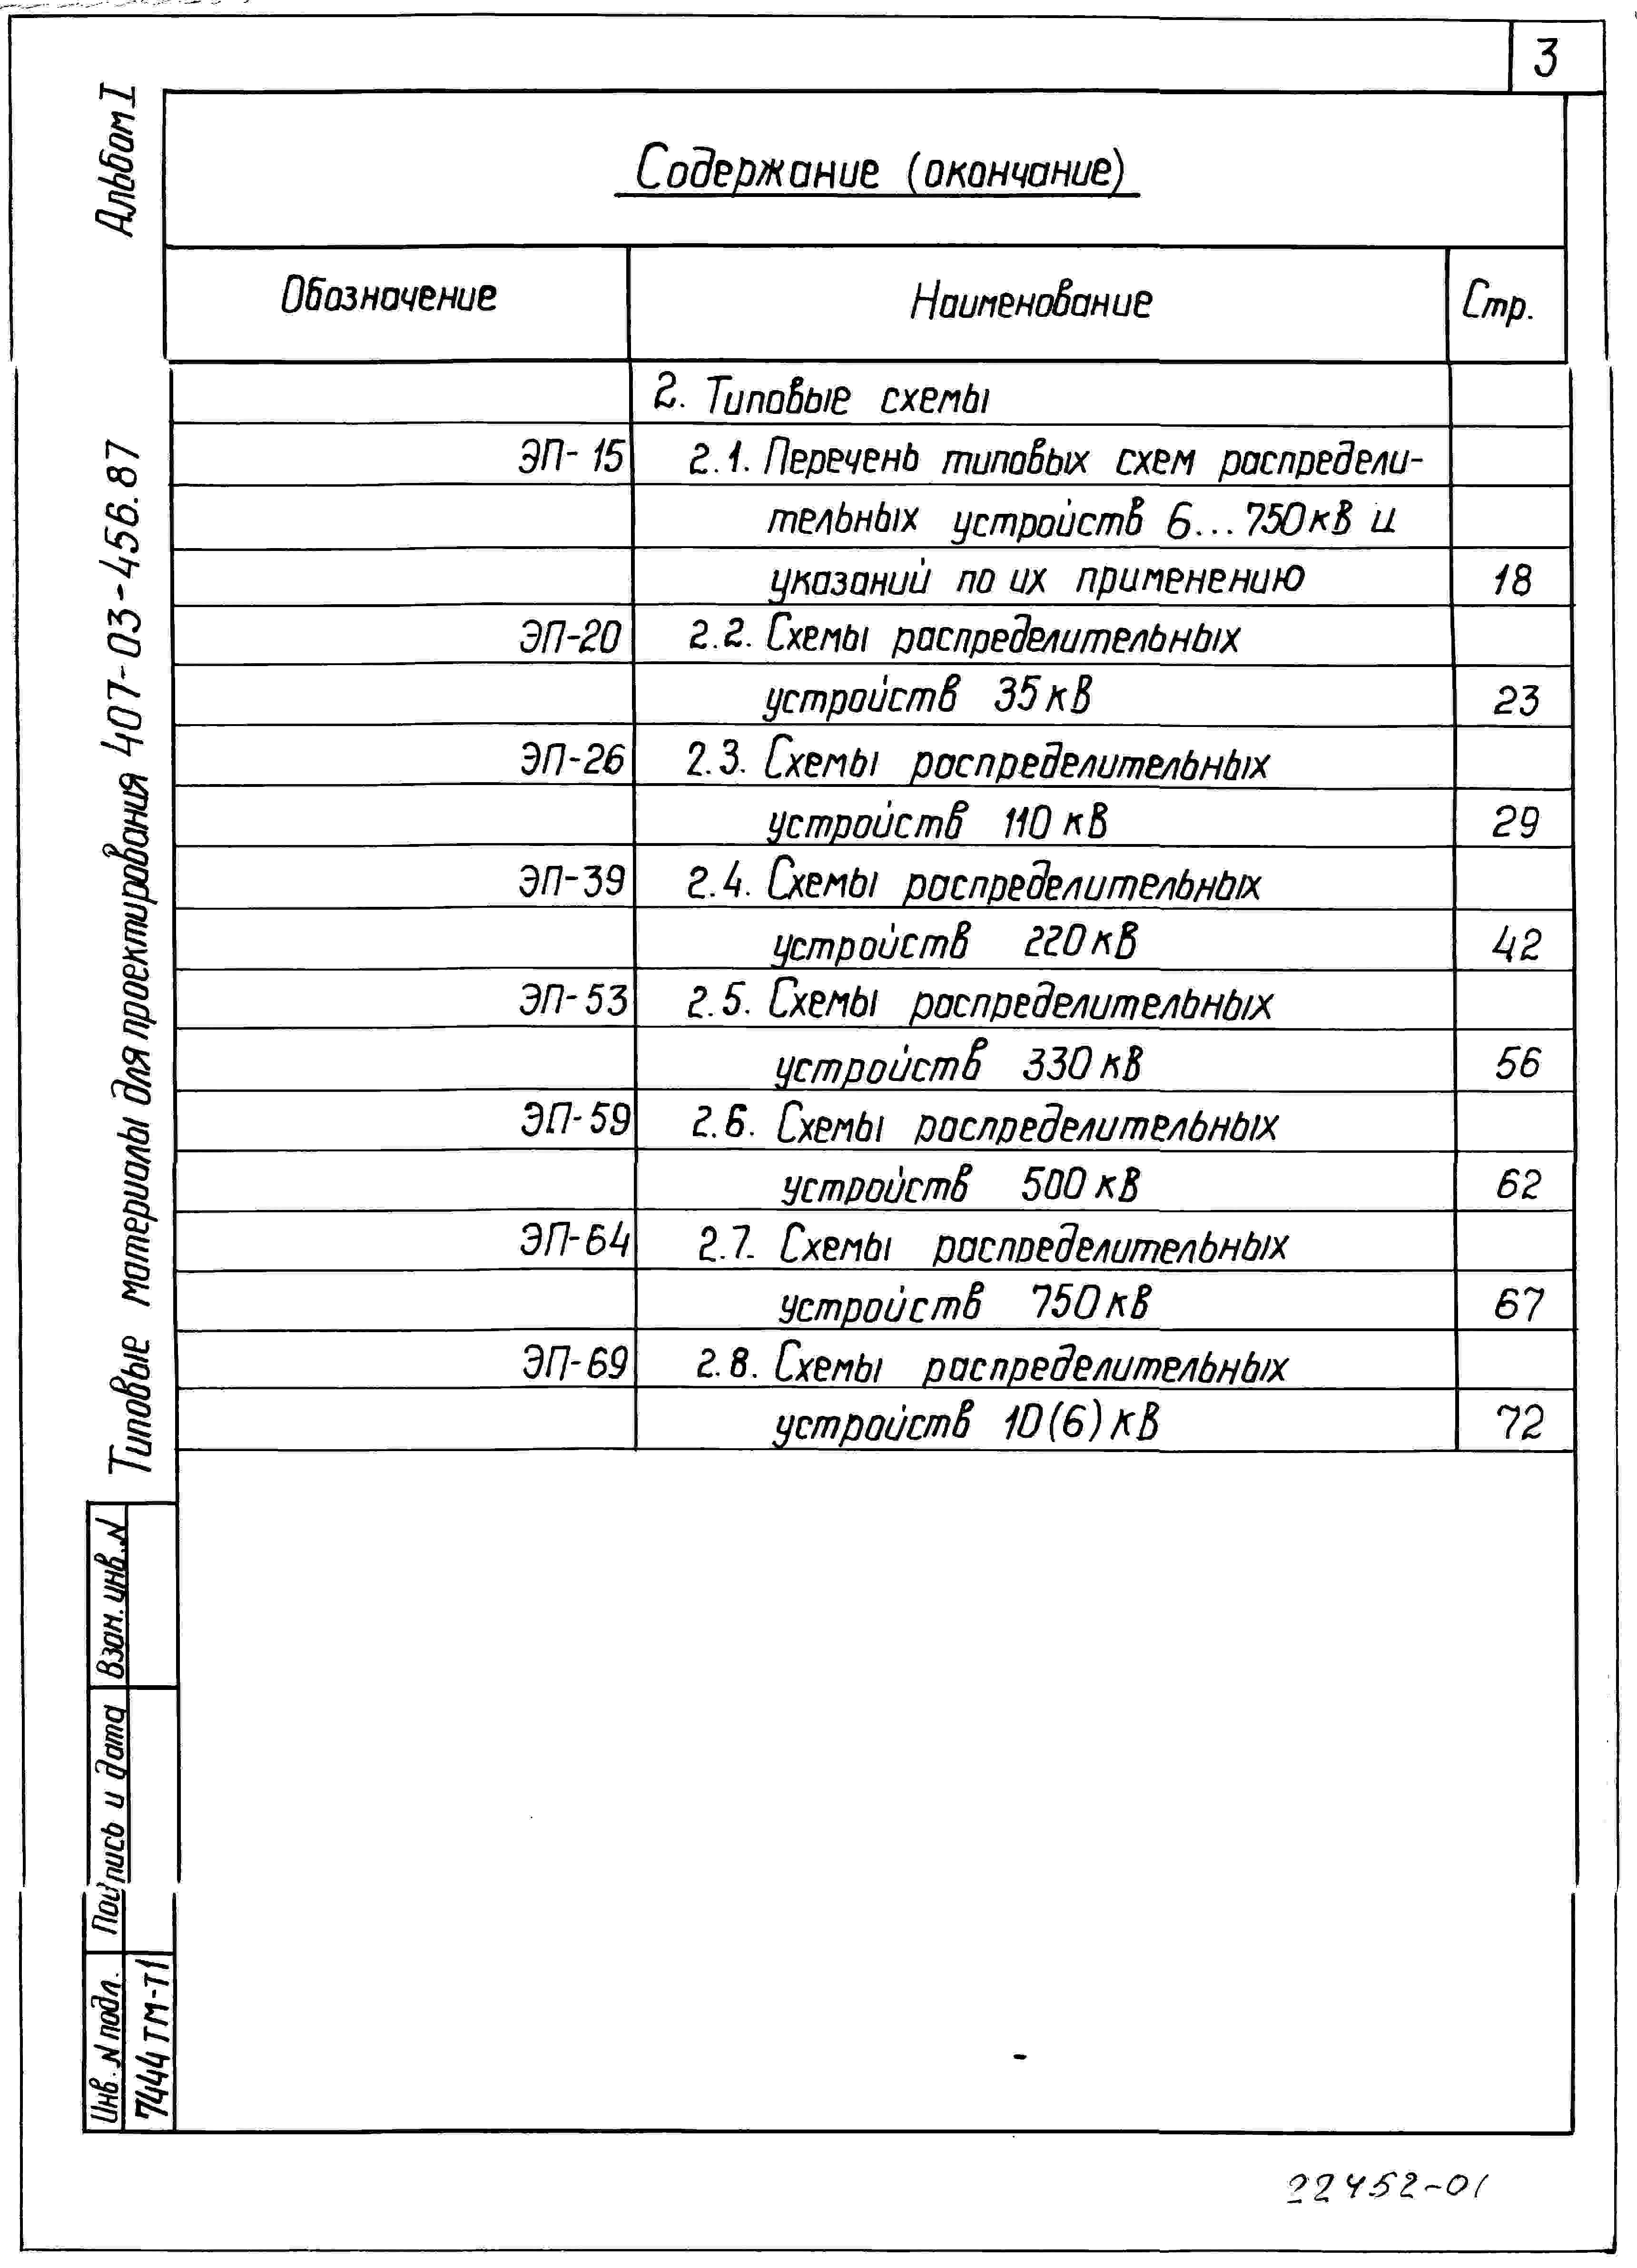 3
Альбом I
Содержание (окончание)
Обозначение Наименование Стр.
2. Типовые схемы
ЭП-15 2.1. Перечень типовых схем распредели-
тельных устройств 6...750кВ и
указаний по их применению 18
ЭП-20 2.2. Схемы распределительных
устройств 35кВ 23
ЭП-26 2.3. Схемы распределительных
устройств 110 кВ 29
ЭП-39 2.4. Схемы распределительных
устройств 220кВ 42
ЭП-53 2.5. Схемы распределительных
устройств 330кВ 56
ЭП-59 2.6. Схемы распределительных
устройств 500кВ 62
ЭП-64 2.7. Схемы распределительных
устройств 750кВ 67
ЭП-69 2.8. Схемы распределительных
устройств 10(6)кВ 72
Типовые материалы для проектирования 407-03-456.87
Взам. инв. N
Подпись и дата
Инв. N подл.
7444тм-т1
22452-01